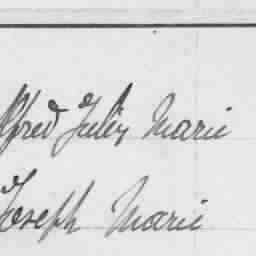 Alfred Jules Marie
Joseph Marie